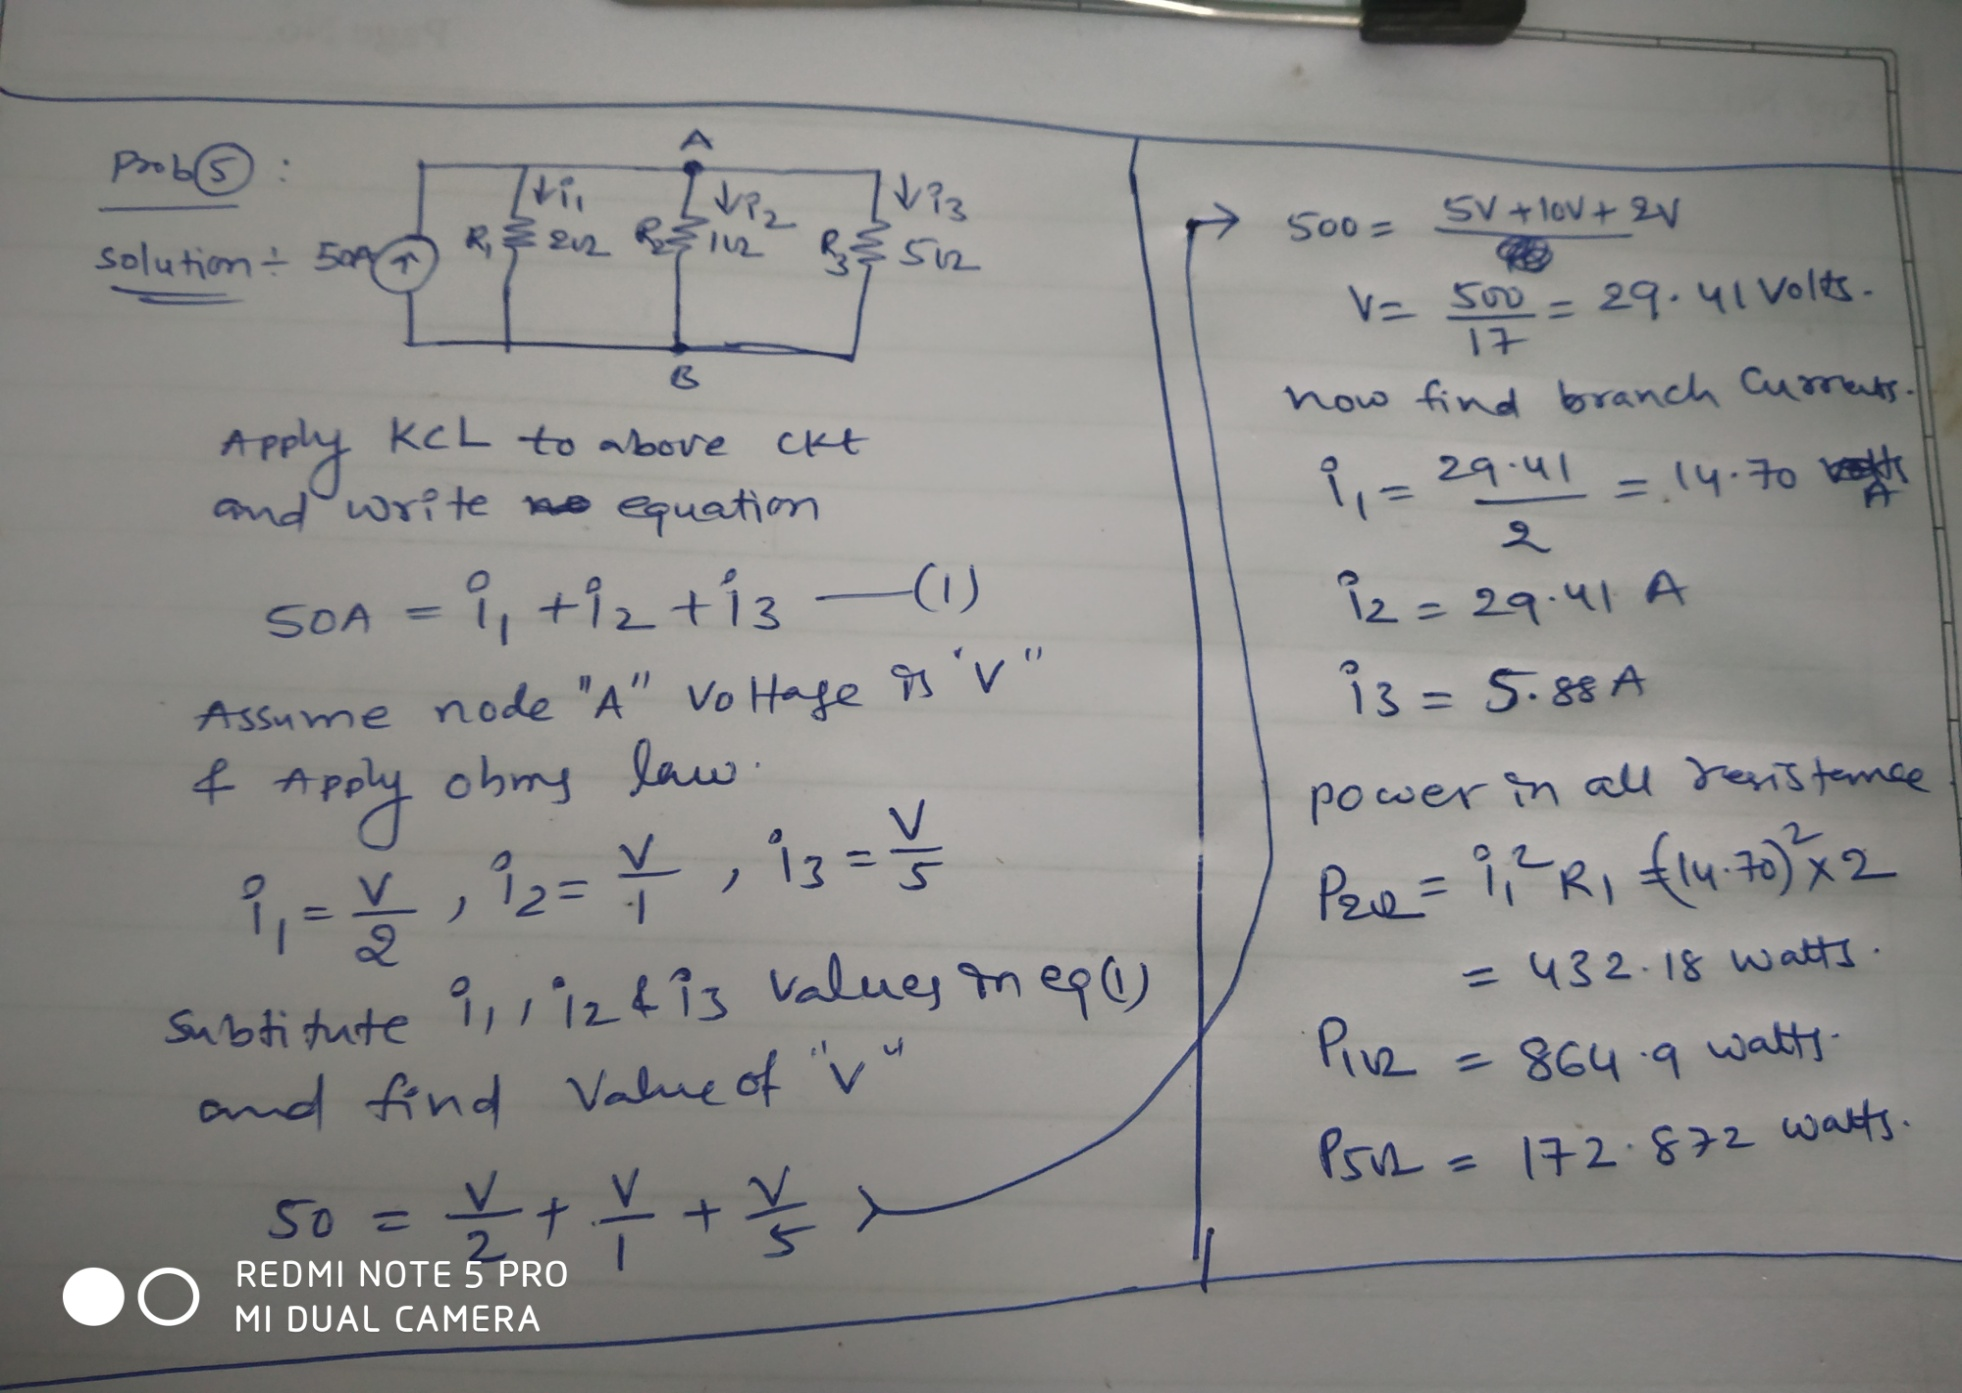 Prob 5 :
Solution ÷
50A
A
↓i₁
↓i₂
↓i₃
R₁ 2Ω
R₂ 1Ω
R₃ 5Ω
B
Apply KCL to above ckt
and write equation
50A = i₁ + i₂ + i₃ —(1)
Assume node "A" Voltage is 'V"
& Apply ohms law.
i₁ = V/2 , i₂ = V/1 , i₃ = V/5
Substitute i₁, i₂ & i₃ values in eq(1)
and find Value of "V"
50 = V/2 + V/1 + V/5
→ 500 = 5V + 10V + 2V
V = 500/17 = 29.41 Volts.
now find branch Currents.
i₁ = 29.41/2 = 14.70 A
i₂ = 29.41 A
i₃ = 5.88 A
power in all resistance
P2Ω = i₁² R₁ = (14.70)² x 2
= 432.18 watts.
P1Ω = 864.9 watts.
P5Ω = 172.872 watts.
REDMI NOTE 5 PRO
MI DUAL CAMERA